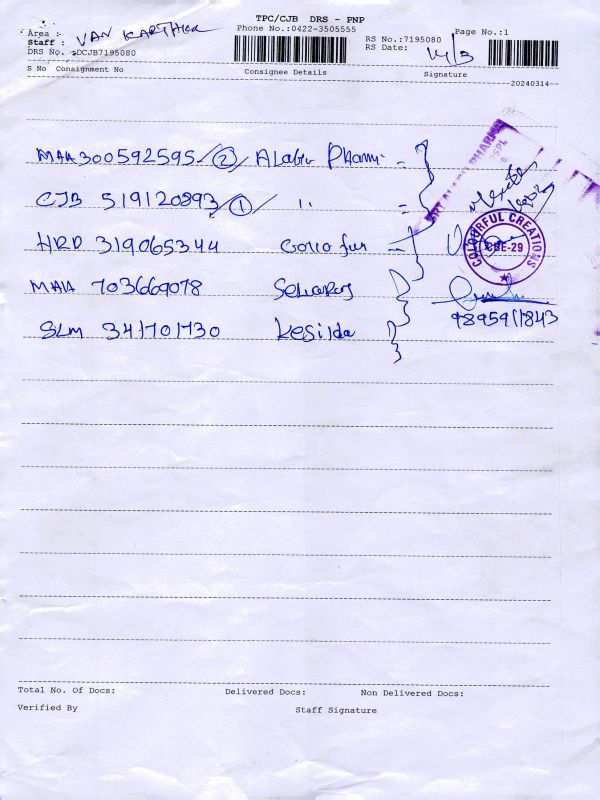 TPC/CJB DRS - PNP
Area :
Phone No.:0422-3505555
Page No.:1
Staff : VAN KARTHIK
RS No.:7195080
DRS No. :DCJB7195080
RS Date: 14/3
S No Consignment No Consignee Details Signature
20240314
MAA 300592595/②/ Alabv Pharm -
CJB 519120893/①/ " =
HRD 319065344
COLOURFUL CREATIONS
CBE-29
MAA 703669078
9895911843
SLM 341701730 Kesilda
Total No. Of Docs: Delivered Docs: Non Delivered Docs:
Verified By Staff Signature